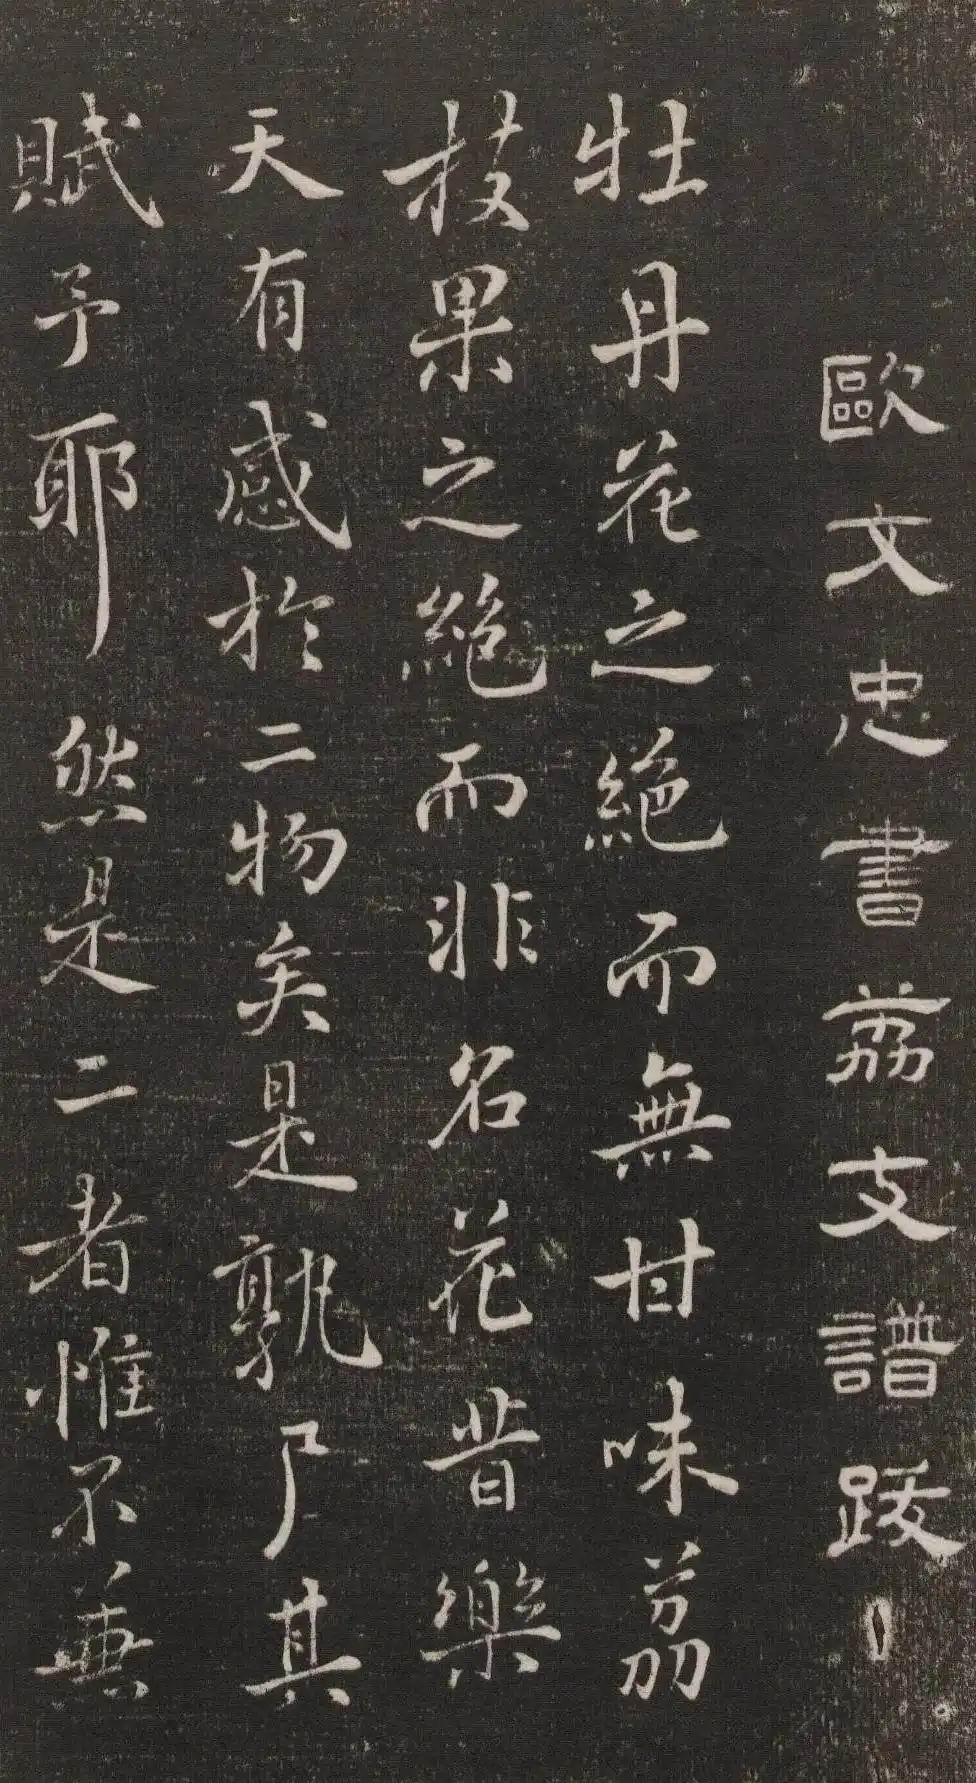 歐文忠書荔支譜跋
牡丹花之絕而無甘味荔
枝果之絕而非名花昔樂
天有感於二物矣是孰尸其
賦予耶然是二者惟不兼